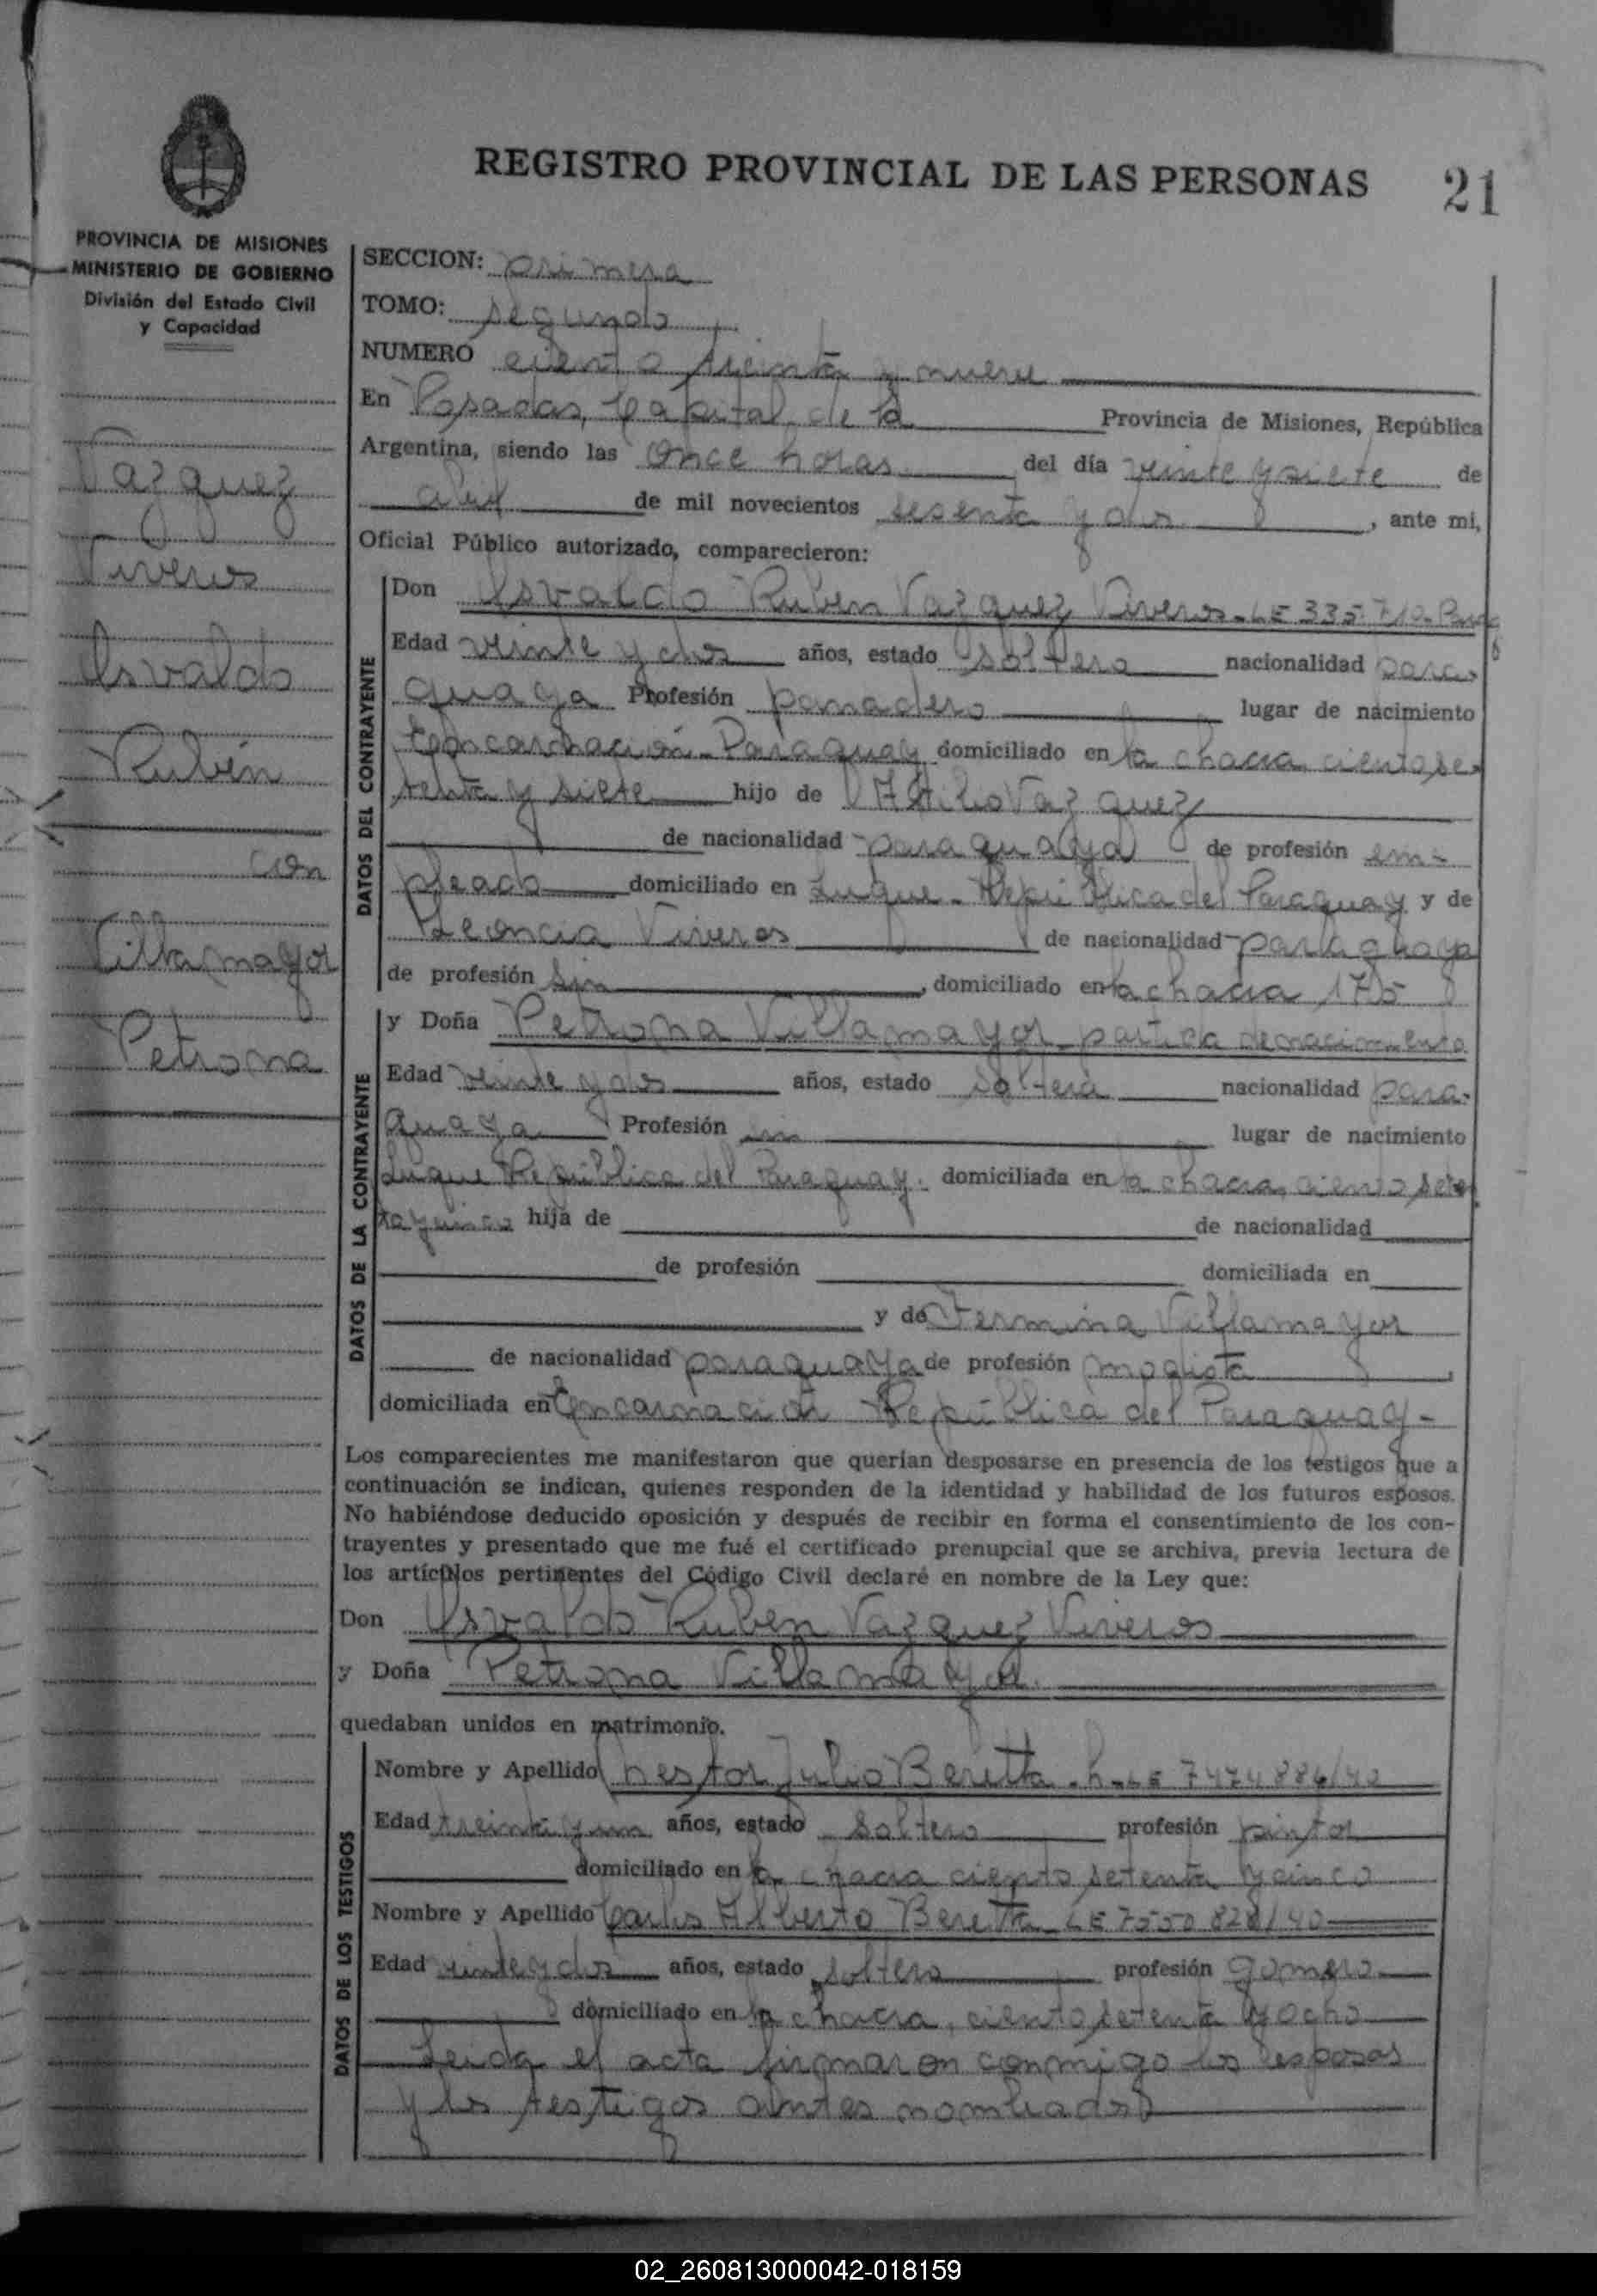 REGISTRO PROVINCIAL DE LAS PERSONAS 21
PROVINCIA DE MISIONES
MINISTERIO DE GOBIERNO
División del Estado Civil
y Capacidad
Vazquez
Viveros
Osvaldo
Rubén
con
Villamayor
Petrona
SECCION: primera
TOMO: segundo
NUMERO ciento treinta y nueve
En Posadas, Capital de la Provincia de Misiones, República
Argentina, siendo las once horas del día veinte y siete de
abril de mil novecientos sesenta y dos, ante mi,
Oficial Público autorizado, comparecieron:
DATOS DEL CONTRAYENTE
Don Osvaldo Ruben Vazquez Viveros - LE 335.710 - Parag
Edad veinte y dos años, estado soltero nacionalidad para-
guaya Profesión panadero lugar de nacimiento
Encarnación - Paraguay domiciliado en la chacra ciento se-
tenta y siete hijo de Atilio Vazquez
de nacionalidad paraguaya de profesión em-
pleado domiciliado en Luque - República del Paraguay y de
Leoncia Viveros de nacionalidad paraguaya
de profesión sin, domiciliado en la chacra 175
DATOS DE LA CONTRAYENTE
y Doña Petrona Villamayor - partida de nacimiento
Edad veinte y dos años, estado soltera nacionalidad para-
guaya Profesión sin lugar de nacimiento
Luque República del Paraguay. domiciliada en la chacra ciento seten
ta y cinco hija de de nacionalidad
de profesión domiciliada en
y de Fermina Villamayor
de nacionalidad paraguaya de profesión modista
domiciliada en Encarnación República del Paraguay -
Los comparecientes me manifestaron que querían desposarse en presencia de los testigos que a
continuación se indican, quienes responden de la identidad y habilidad de los futuros esposos.
No habiéndose deducido oposición y después de recibir en forma el consentimiento de los con-
trayentes y presentado que me fué el certificado prenupcial que se archiva, previa lectura de
los artículos pertinentes del Código Civil declaré en nombre de la Ley que:
Don Osvaldo Ruben Vazquez Viveros
y Doña Petrona Villamayor.
quedaban unidos en matrimonio.
DATOS DE LOS TESTIGOS
Nombre y Apellido Nestor Julio Beretta - h - LE 7474886/40
Edad treinta y un años, estado soltero profesión pintor
domiciliado en la chacra ciento setenta y cinco
Nombre y Apellido Carlos Alberto Beretta - LE 7550828/40
Edad veinte y dos años, estado soltero profesión gomero
domiciliado en la chacra, ciento setenta y ocho
Leida el acta firmaron conmigo los esposos
y los testigos antes nombrados
02_260813000042-018159